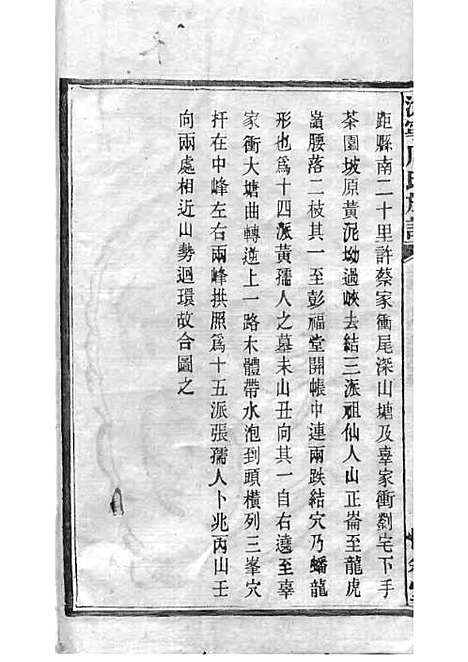 距縣南二十里許蔡家衝尾深山塘及辜家衝劉宅下手
茶園坡原黃泥坳過峽去結三派祖仙人山正崙至龍虎
嶺腰落二枝其一至彭福堂開帳中連兩跌結穴乃蟠龍
形也爲十四派黃孺人之墓未山丑向其一自右遶至辜
家衝大塘曲轉逆上一路木體帶水泡到頭橫列三峯穴
扦在中峰左右兩峰拱照爲十五派張孺人卜兆丙山壬
向兩處相近山勢迴環故合圖之